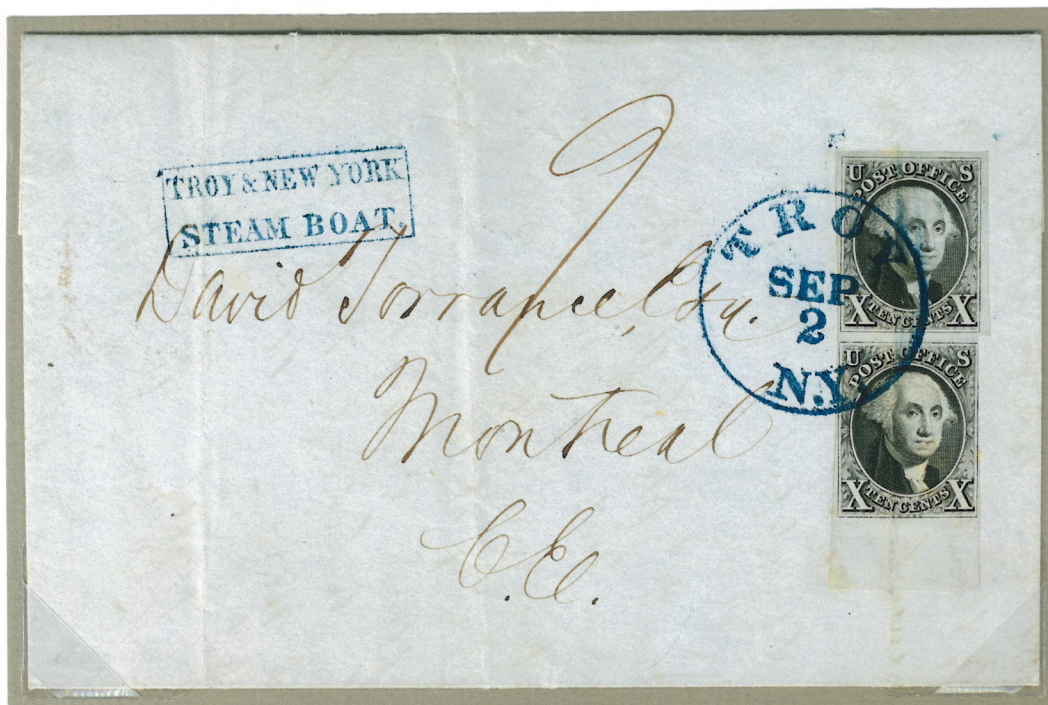 TROY & NEW YORK
STEAM BOAT.
9
David Torrance Esq.
Montreal
C.E.
TROY
SEP
2
N.Y.
U S
POST OFFICE
X TEN CENTS X
U S
POST OFFICE
X TEN CENTS X